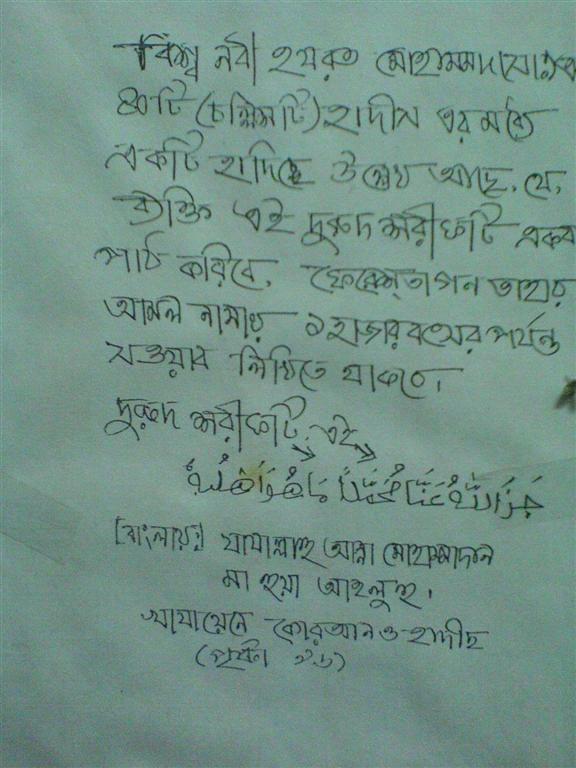 বিশ্ব নবী হযরত মোহাম্মদ (সাঃ) এর
৪০টি (চল্লিশটি) হাদীস এর মধ্যে
একটি হাদিছে উল্লেখ আছে, যে,
ব্যক্তি এই দুরুদ শরীফটি একবা
পাঠ করিবে, ফেরেস্তাগন তাহার
আমল নামায় ১ হাজার বৎসর পর্যন্ত
সওয়াব লিখিতে থাকবে।
দুরুদ শরীফটি এই
جزا الله عنا محمدا ما هو اهله
[বাংলায়ঃ] যাযাল্লাহু আন্না মোহাম্মাদান
মা হুয়া আহলুহু।
খাযায়েনে কোরআন ও হাদীছ
(পৃষ্টা ২৬)